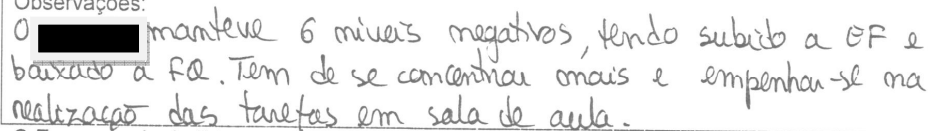 Observações:
O manteve 6 níveis negativos, tendo subido a EF e
baixado a FQ. Tem de se concentrar mais e empenhar-se na
realização das tarefas em sala de aula.